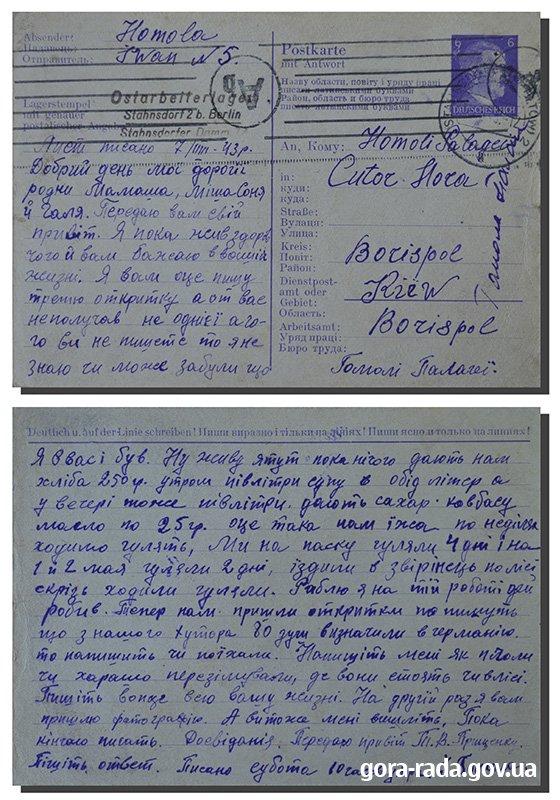 Absender:
Надавець:
Отправитель:
Homola
Iwan N 5.
Lagerstempel
mit genauer
postalischer Angabe
Ostarbeiterlager
Stahnsdorf 2 b. Berlin
Stahnsdorfer Damm
Лист писано 7/ -43р.
Добрий день мої дорогії
родни Мамаша, Міша Соня
й Галя. Передаю вам свій
привіт. Я пока жив здоров
чого й вам бажаю в вашій
жизні. Я вам оце пишу
третю откритку а от вас
неполучав не однієї а чо-
го ви не пишете то я не
знаю чи може забули що
Postkarte
mit Antwort
Назву области, повіту і уряду праці
писати латинськими буквами
Район, область и бюро труда
писать латинскими буквами
9 6
DEUTSCHES REICH
An, Кому: Homoli
in:
куди:
куда:
Cutor. Hora
Straße:
Вулиця:
Улица:
Kreis:
Повіт:
Район:
Borispol
Dienstpost-
amt oder
Gebiet:
Область:
Kiew
Arbeitsamt:
Уряд праці:
Бюро труда:
Borispol
Гомолі Палагеї.
Deutlich u. auf der Linie schreiben! Пиши виразно і тільки на лініях! Пиши ясно и только на линиях!
Я в вас і був. Ну живу я тут пока нічого дають нам
хліба 250 гр. утром півлітри супу в обід літер а
у вечері тоже півлітри. дають сахар ковбасу
масло по 25 гр. оце така нам їжа по неділях
ходимо гулять, Ми на паску гуляли 4 дні і на
1 й 2 мая гуляли 2 дні, їздили в звірінець по лісі
скрізь ходили гуляли. Раблю я на тій роботі дей
робив. Тепер нам пришли откритки то пишуть
що з нашого хутора 80 душ визначили в германію.
то напишить чи поїхали. Напишіть мені як пчоли
чи харашо перезімували, де вони стоять чи в лісі.
Пишіть вопще всю вашу жизні. На другій раз я вам
пришлю фатографію. А ви тоже мені вишліть, Пока
кінчаю писать. Досвіданія. Передаю привіт Т. В. Приценку.
Пішіть ответ. Писано субота 10 час
gora-rada.gov.ua